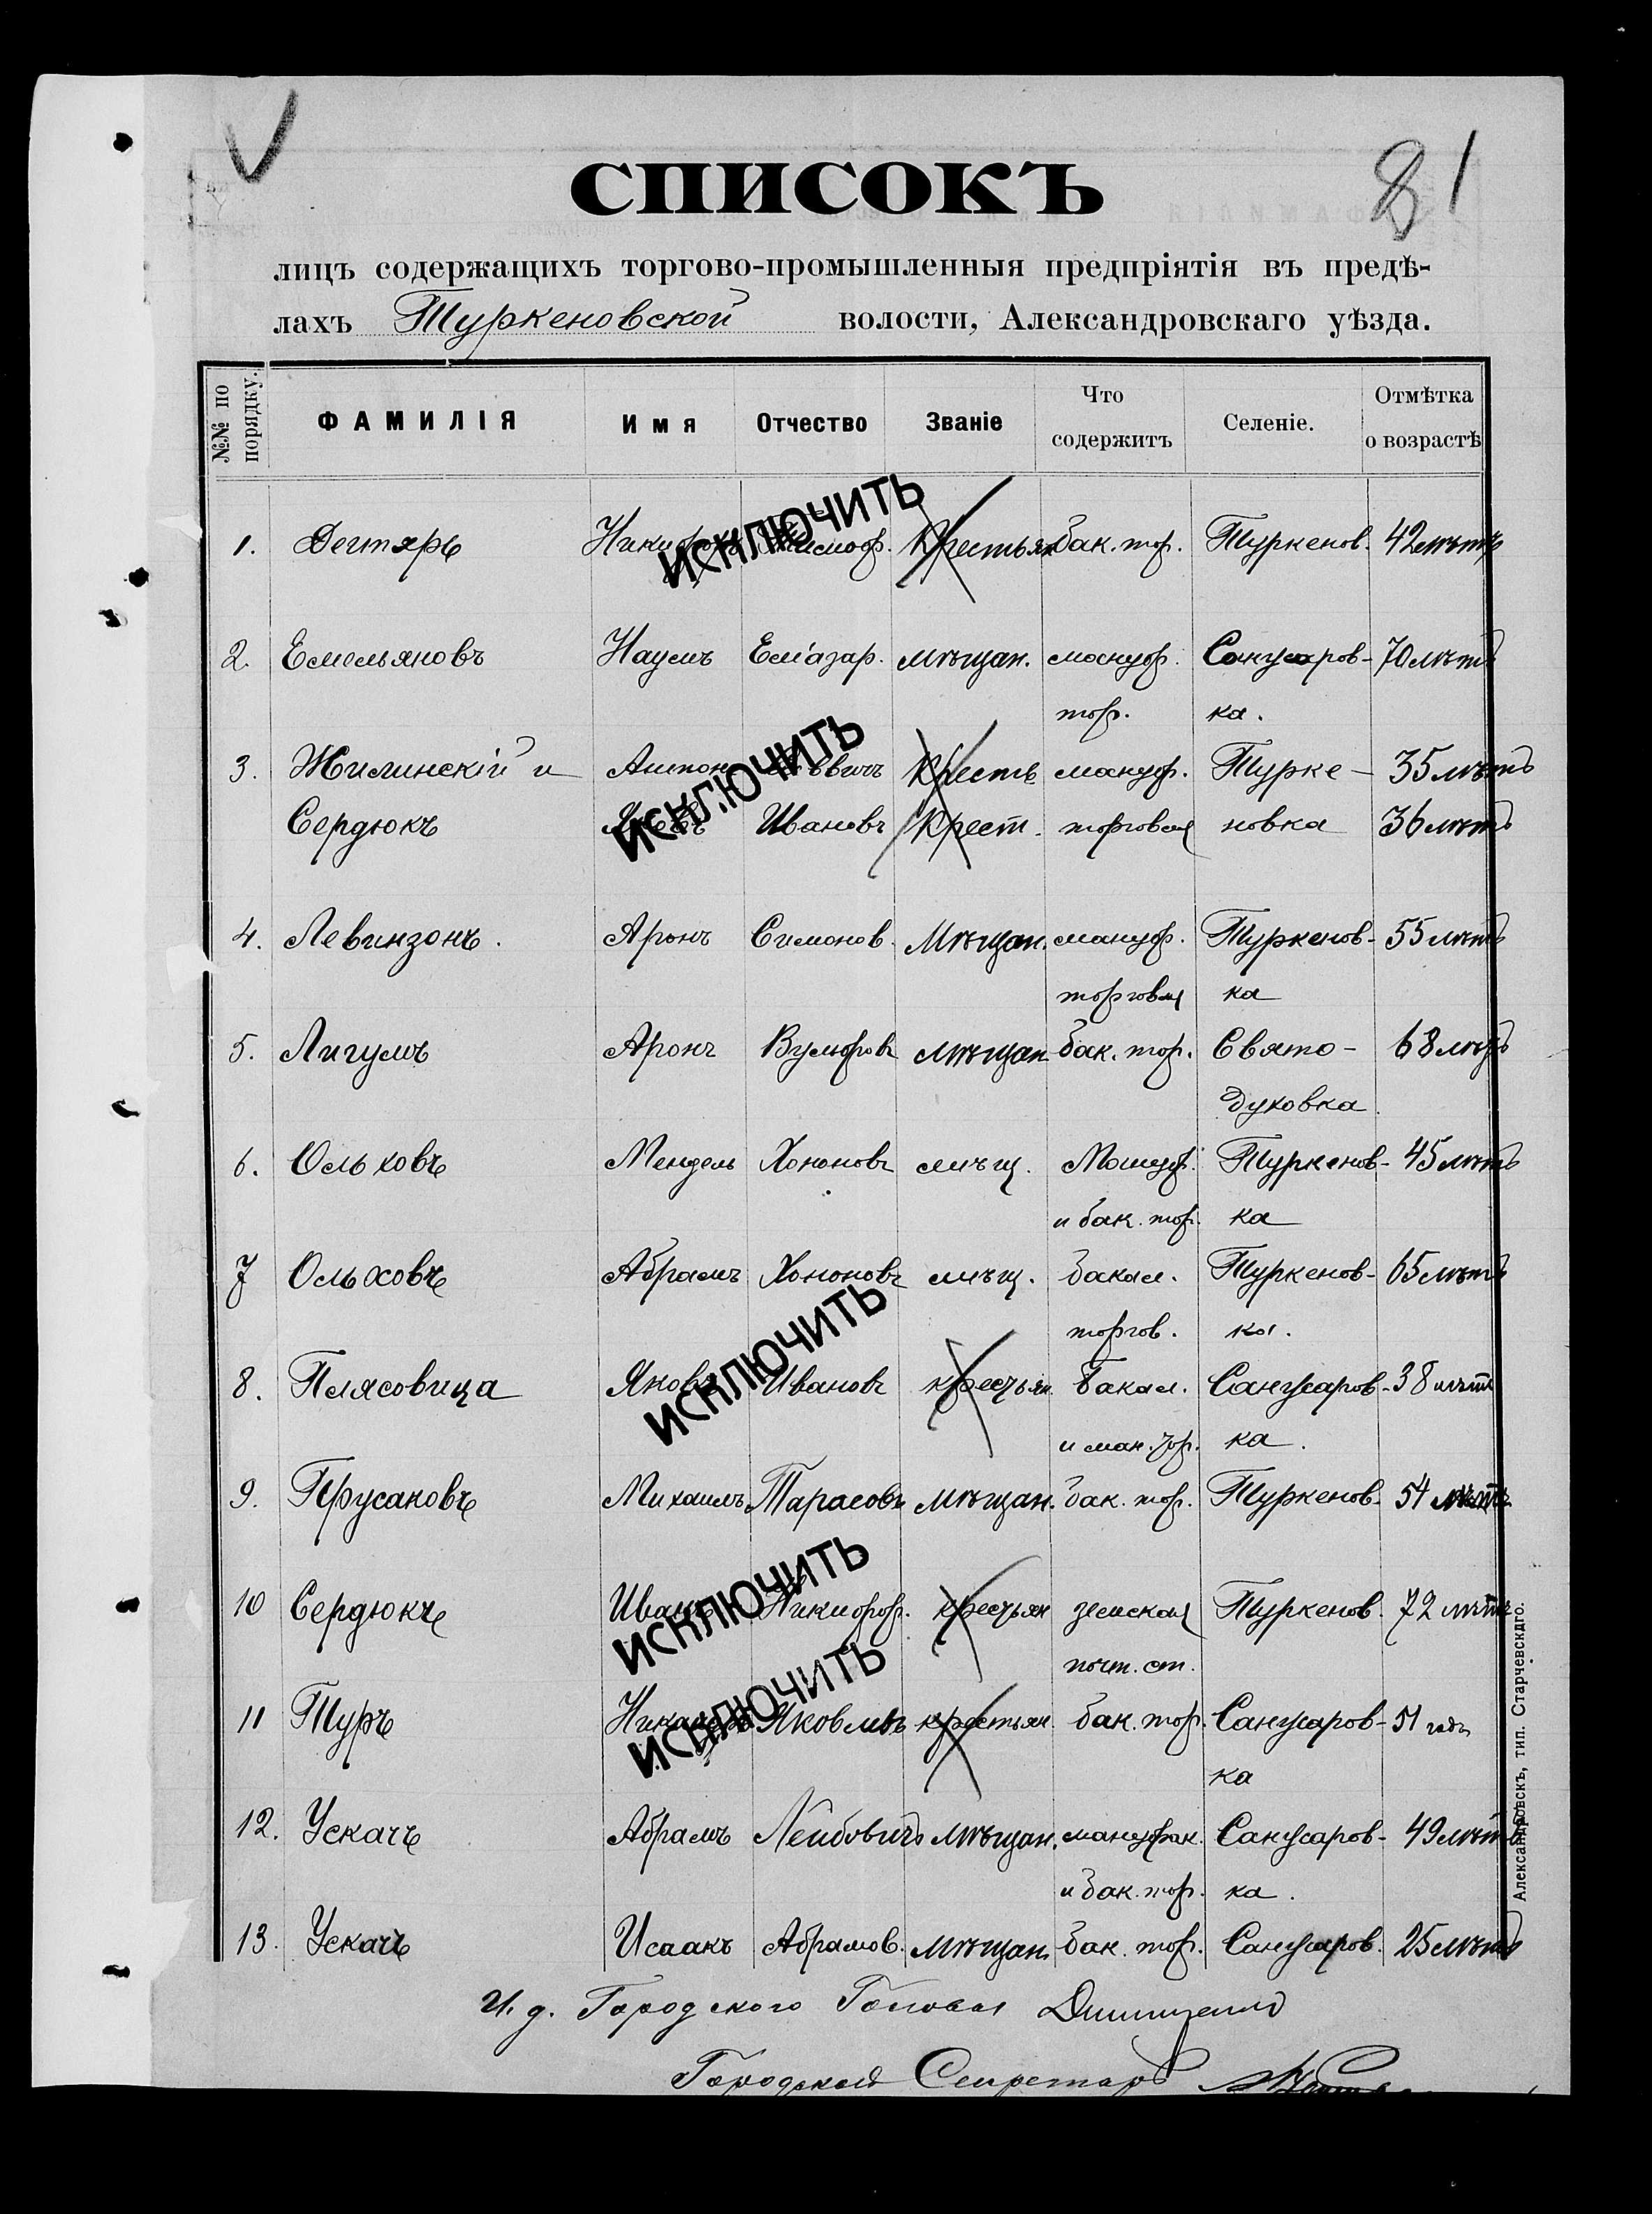 81
СПИСОКЪ
лицъ содержащихъ торгово-промышленныя предпріятія въ предѣ-
лахъ Туркеновской волости, Александровскаго уѣзда.
№№ по порядку. ФАМИЛІЯ Имя Отчество Званіе Что содержитъ Селеніе. Отмѣтка о возрастѣ
ИСКЛЮЧИТЬ
1. Дегтярь Крестьян бак. тор. Туркенов. 42 лѣтъ
2. Емельяновъ Наумъ Еліазар. мѣщан. мануф. Санжаров- 70 лѣтъ
тор. ка.
ИСКЛЮЧИТЬ
3. Жилинскій и Антонъ Крестъ мануф. Турке- 35 лѣтъ
Сердюкъ Ивановъ Крест. торговля новка 36 лѣтъ
4. Левинзонъ. Аронъ Симонов. Мѣщан. мануф. Туркенов- 55 лѣтъ
торговля ка
5. Лигумъ Аронъ Вульфовъ мѣщан бак. тор. Свято- 68 лѣтъ
духовка.
6. Ольховъ Мендель Хононовъ мѣщ. Мануф. Туркенов- 45 лѣтъ
и бак. тор. ка
7 Ольховъ Абрамъ Хононовъ мѣщ. бакал. Туркенов- 65 лѣтъ
торгов. ка.
ИСКЛЮЧИТЬ
8. Плясовица Яковъ Ивановъ крестьян Бакал. Санжаров- 38 лѣтъ
и ман. тор. ка.
9. Прусаковъ Михаилъ Тарасовъ мѣщан. бак. тор. Туркенов- 54 лѣтъ
ИСКЛЮЧИТЬ
10 Сердюкъ Иванъ Никифор. крестьян земская Туркенов. 72 лѣтъ
почт. ст.
ИСКЛЮЧИТЬ
11 Туръ Яковлевъ крестьян бак. тор. Санжаров- 51 годъ
ка
12. Ускачъ Абрамъ Лейбовичъ мѣщан. мануфак. Санжаров- 49 лѣтъ
и бак. тор. ка.
13. Ускачъ Исаакъ Абрамов. мѣщан. бак. тор. Санжаров. 25 лѣтъ
И. д. Городского Головы
Городской Секретарь
Александровскъ, тип. Старчевскаго.